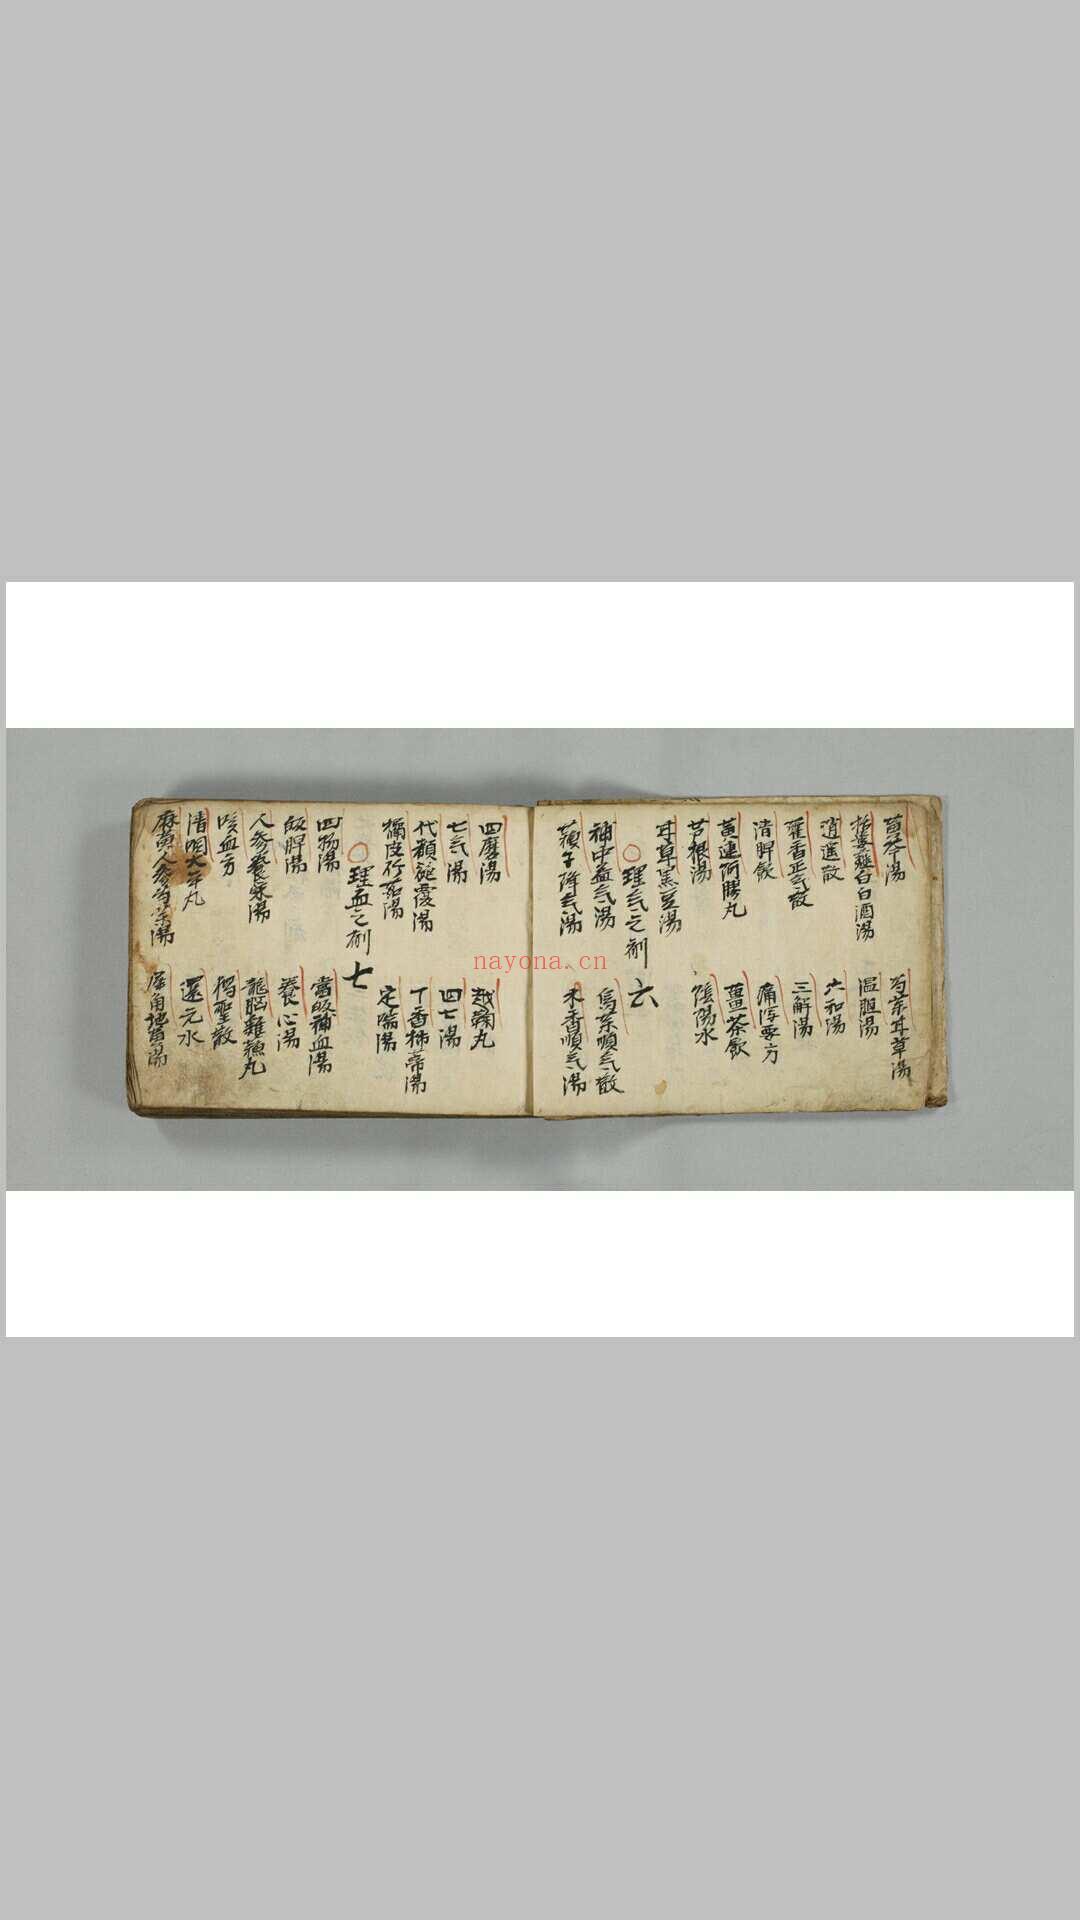 黃芩湯 芍藥甘草湯
括蔞薤白白酒湯 温胆湯
逍遥散 六和湯
藿香正气散 三解湯
清脾飲 痛泻要方
黃連阿膠丸 薑茶飲
芦根湯 陰陽水
甘草黑豆湯
理气之剂 六
補中益气湯 烏藥順气散
蘇子降气湯 木香順气湯
四磨湯 越鞠丸
七气湯 四七湯
代赭旋覆湯 丁香柿蒂湯
橘皮竹茹湯 定喘湯
理血之剂 七
四物湯 當皈補血湯
皈脾湯 養心湯
人參養榮湯 龍腦雞蘓丸
咳血方 槐聖散
還元水
麻黄人參芍藥湯 犀角地黃湯
nayona.cn